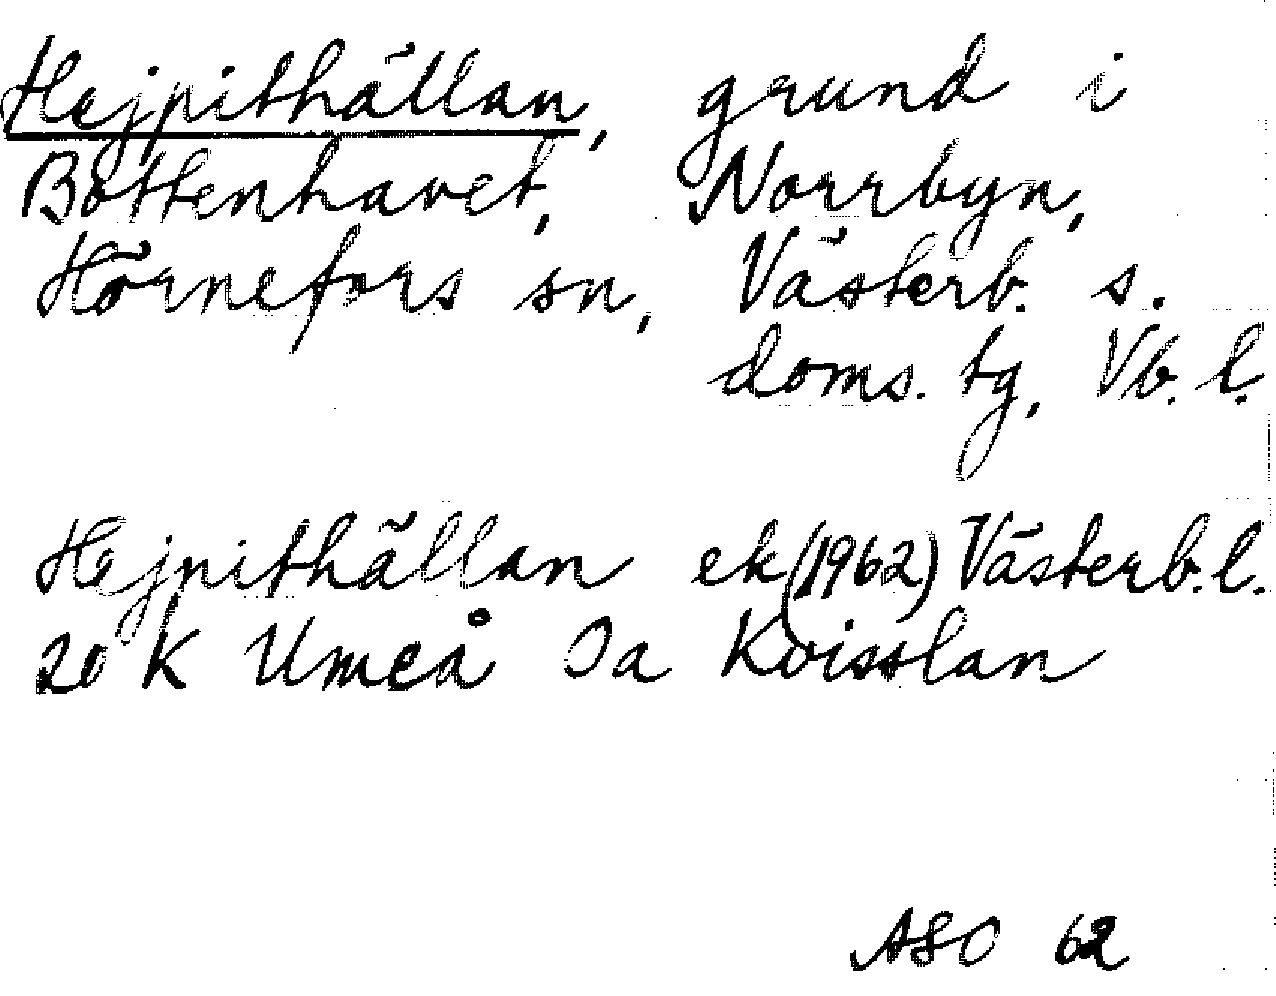 Hejpithällan, grund i
Bottenhavet, Norrbyn,
Hörnefors sn, Västerb. s.
doms. tg, Vb. l.
Hejpithällan ek (1962) Västerb. l.
20 K Umeå Ia Kvisslan
ASO 62